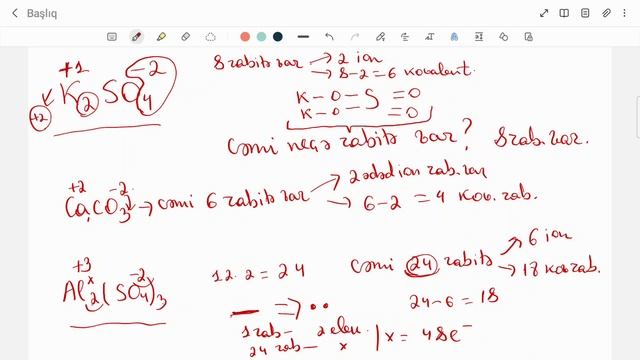 Başlıq
+1 -2
K2SO4
+2
8 rabitə var → 2 ion
→ 8-2=6 kovalent
K-O-S=O
K-O- =O
Cəmi neçə rabitə var? 8 rab. var.
+2 -2
CaCO3 → cəmi 6 rabitə var → 2 ədəd ion rab. var
→ 6-2 = 4 kov. rab.
+3 -2
Al2(SO4)3
x
12·2=24
cəmi 24 rabitə → 6 ion
→ 18 kov rab.
24-6=18
— ⇒ ••
1 rab — 2 elek
24 rab — x
x = 48e⁻